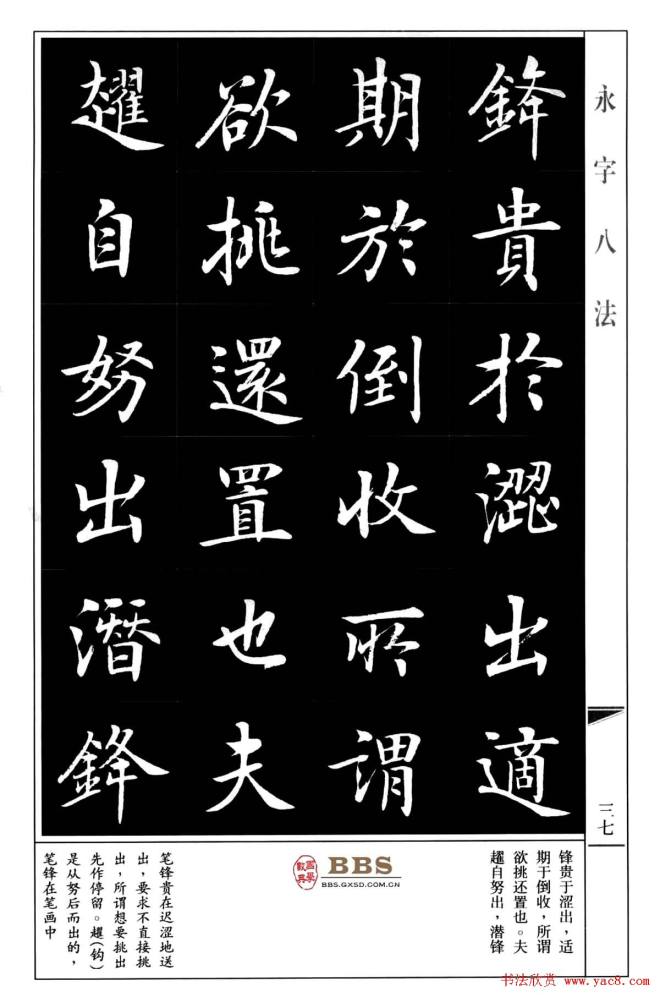 永字八法
鋒貴於澀出適
期於倒收所謂
欲挑還置也夫
趯自努出潛鋒
三七
锋贵于涩出，适
期于倒收，所谓
欲挑还置也。夫
趯自努出，潜锋
國學
數典
BBS
BBS.GXSD.COM.CN
笔锋贵在迟涩地送
出，要求不直接挑
出，所谓想要挑出
先作停留。趯（钩）
是从努后而出的，
笔锋在笔画中
书法欣赏 www.yac8.com